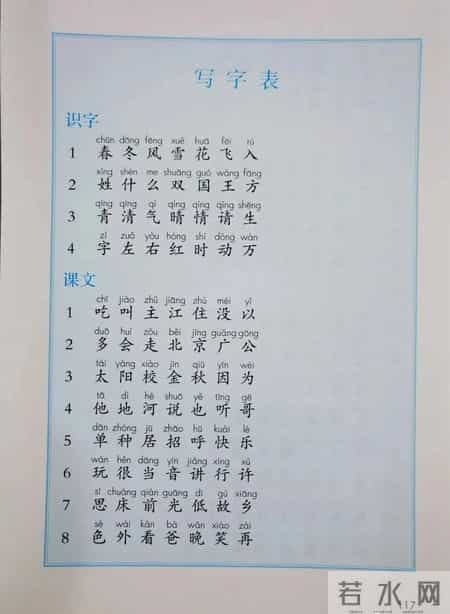 写字表
识字
chūn dōng fēng xuě huā fēi rù
1 春 冬 风 雪 花 飞 入
xìng shén me shuāng guó wáng fāng
2 姓 什 么 双 国 王 方
qīng qīng qì qíng qíng qǐng shēng
3 青 清 气 晴 情 请 生
zì zuǒ yòu hóng shí dòng wàn
4 字 左 右 红 时 动 万
课文
chī jiào zhǔ jiāng zhù méi yǐ
1 吃 叫 主 江 住 没 以
duō huì zǒu běi jīng guǎng gōng
2 多 会 走 北 京 广 公
tài yáng xiào jīn qiū yīn wèi
3 太 阳 校 金 秋 因 为
tā dì hé shuō yě tīng gē
4 他 地 河 说 也 听 哥
dān zhǒng jū zhāo hū kuài lè
5 单 种 居 招 呼 快 乐
wán hěn dāng yīn jiǎng xíng xǔ
6 玩 很 当 音 讲 行 许
sī chuáng qián guāng dī gù xiāng
7 思 床 前 光 低 故 乡
sè wài kàn bà wǎn xiào zài
8 色 外 看 爸 晚 笑 再
117
若水网